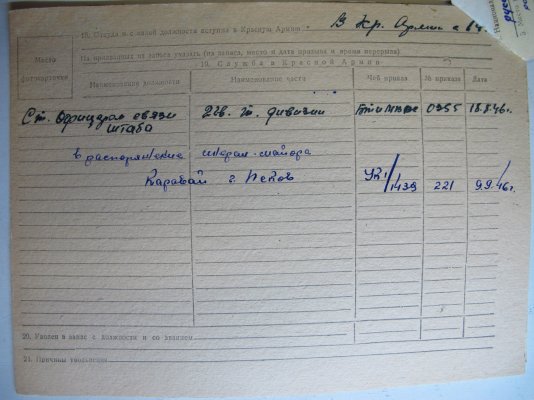 18. Откуда и с какой должности вступил в Красную Армию В Кр. Армии с
На призванных из запаса указать (из запаса, место и дата призыва и время перерыва)
19. Служба в Красной Армии
Место фотокарточки
Наименование должности Наименование части Чей приказ № приказа Дата
Ст. Офицером связи штаба 2 гв. т. дивизии 0355 18.8.46г.
в распоряжение генерал-майора
Каравай г. Псков УК1/1439 221 9.9.46г.
20. Уволен в запас с должности и со званием
21. Причины увольнения